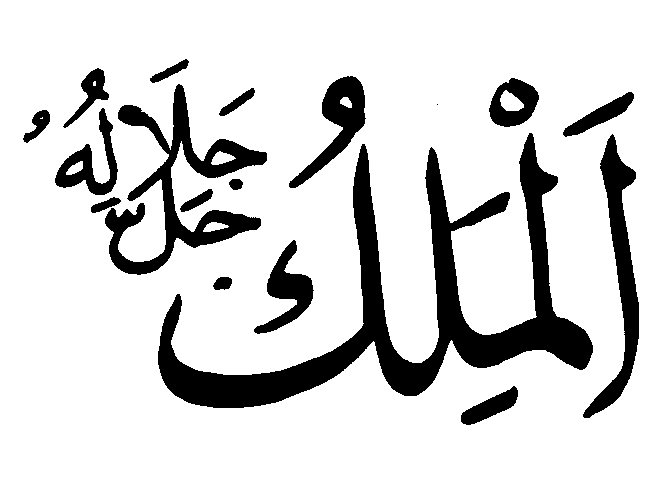 اَلْمَلِكُ
جَلَّ جَلَالُهُ